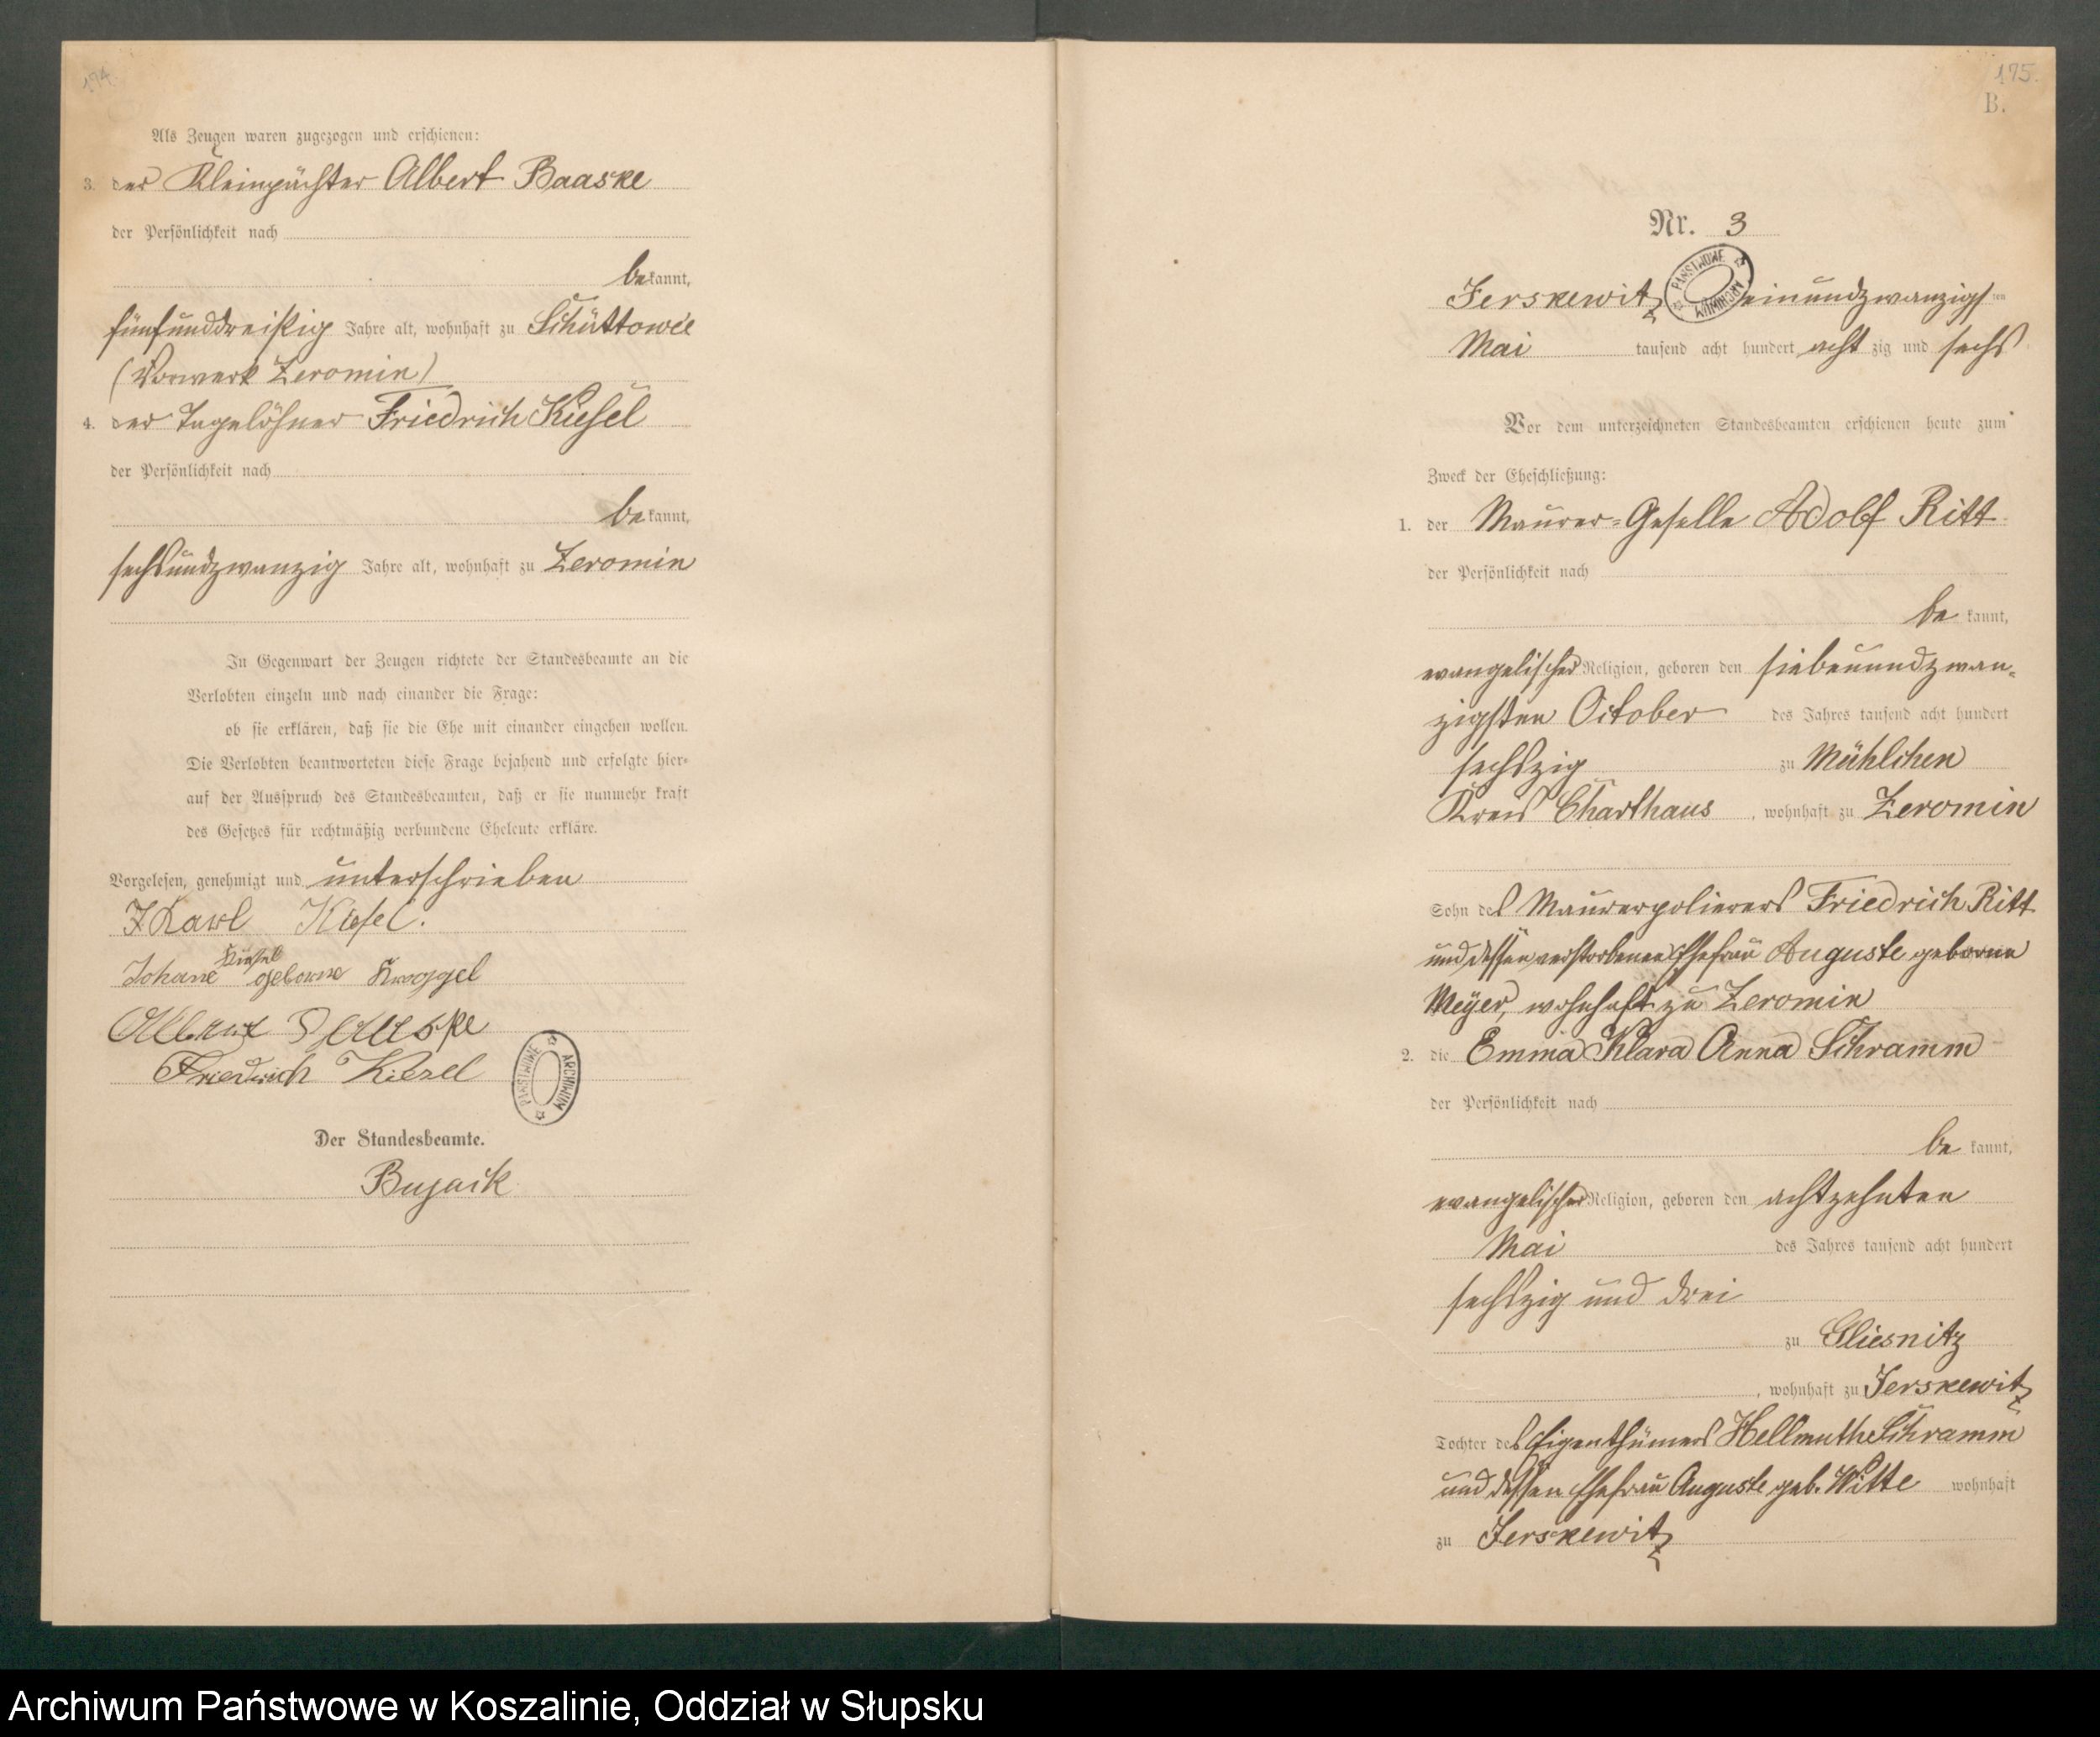 174.
Als Zeugen waren zugezogen und erschienen:
3. der Kleinpächter Albert Baaske
der Persönlichkeit nach
bekannt,
fünfunddreißig Jahre alt, wohnhaft zu Schüttowie
(Vorwerk Zeromin)
4. der Tagelöhner Friedrich Kiesel
der Persönlichkeit nach
bekannt,
sechsundzwanzig Jahre alt, wohnhaft zu Zeromin
In Gegenwart der Zeugen richtete der Standesbeamte an die
Verlobten einzeln und nach einander die Frage:
ob sie erklären, daß sie die Ehe mit einander eingehen wollen.
Die Verlobten beantworteten diese Frage bejahend und erfolgte hier-
auf der Ausspruch des Standesbeamten, daß er sie nunmehr kraft
des Gesetzes für rechtmäßig verbundene Eheleute erkläre.
Vorgelesen, genehmigt und unterschrieben
Karl Kiesel.
Kiesel
Johane geborne
Albert Baaske
Friedrich Kiesel
ARCHIWUM PAŃSTWOWE
Der Standesbeamte.
Bujack
175.
B.
Nr. 3
ARCHIWUM PAŃSTWOWE
Jerskewitz einundzwanzigsten
Mai tausend acht hundert achtzig und sechs
Vor dem unterzeichneten Standesbeamten erschienen heute zum
Zweck der Eheschließung:
1. der Maurer-Geselle Adolf Ritt
der Persönlichkeit nach
bekannt,
evangelischer Religion, geboren den siebenundzwan-
zigsten October des Jahres tausend acht hundert
sechszig zu Mühlchen
Kreis Charthaus, wohnhaft zu Zeromin
Sohn des Maurerpolierers Friedrich Ritt
und dessen verstorbenen Ehefrau Auguste geborne
Meyer, wohnhaft zu Zeromin
2. die Emma Klara Anna Schramm
der Persönlichkeit nach
bekannt,
evangelischer Religion, geboren den achtzehnten
Mai des Jahres tausend acht hundert
sechszig und drei
zu Gliesnitz
, wohnhaft zu Jerskewitz
Tochter des Eigenthümers Hellmuth Schramm
und dessen Ehefrau Auguste geb. Witte wohnhaft
zu Jerskewitz
Archiwum Państwowe w Koszalinie, Oddział w Słupsku